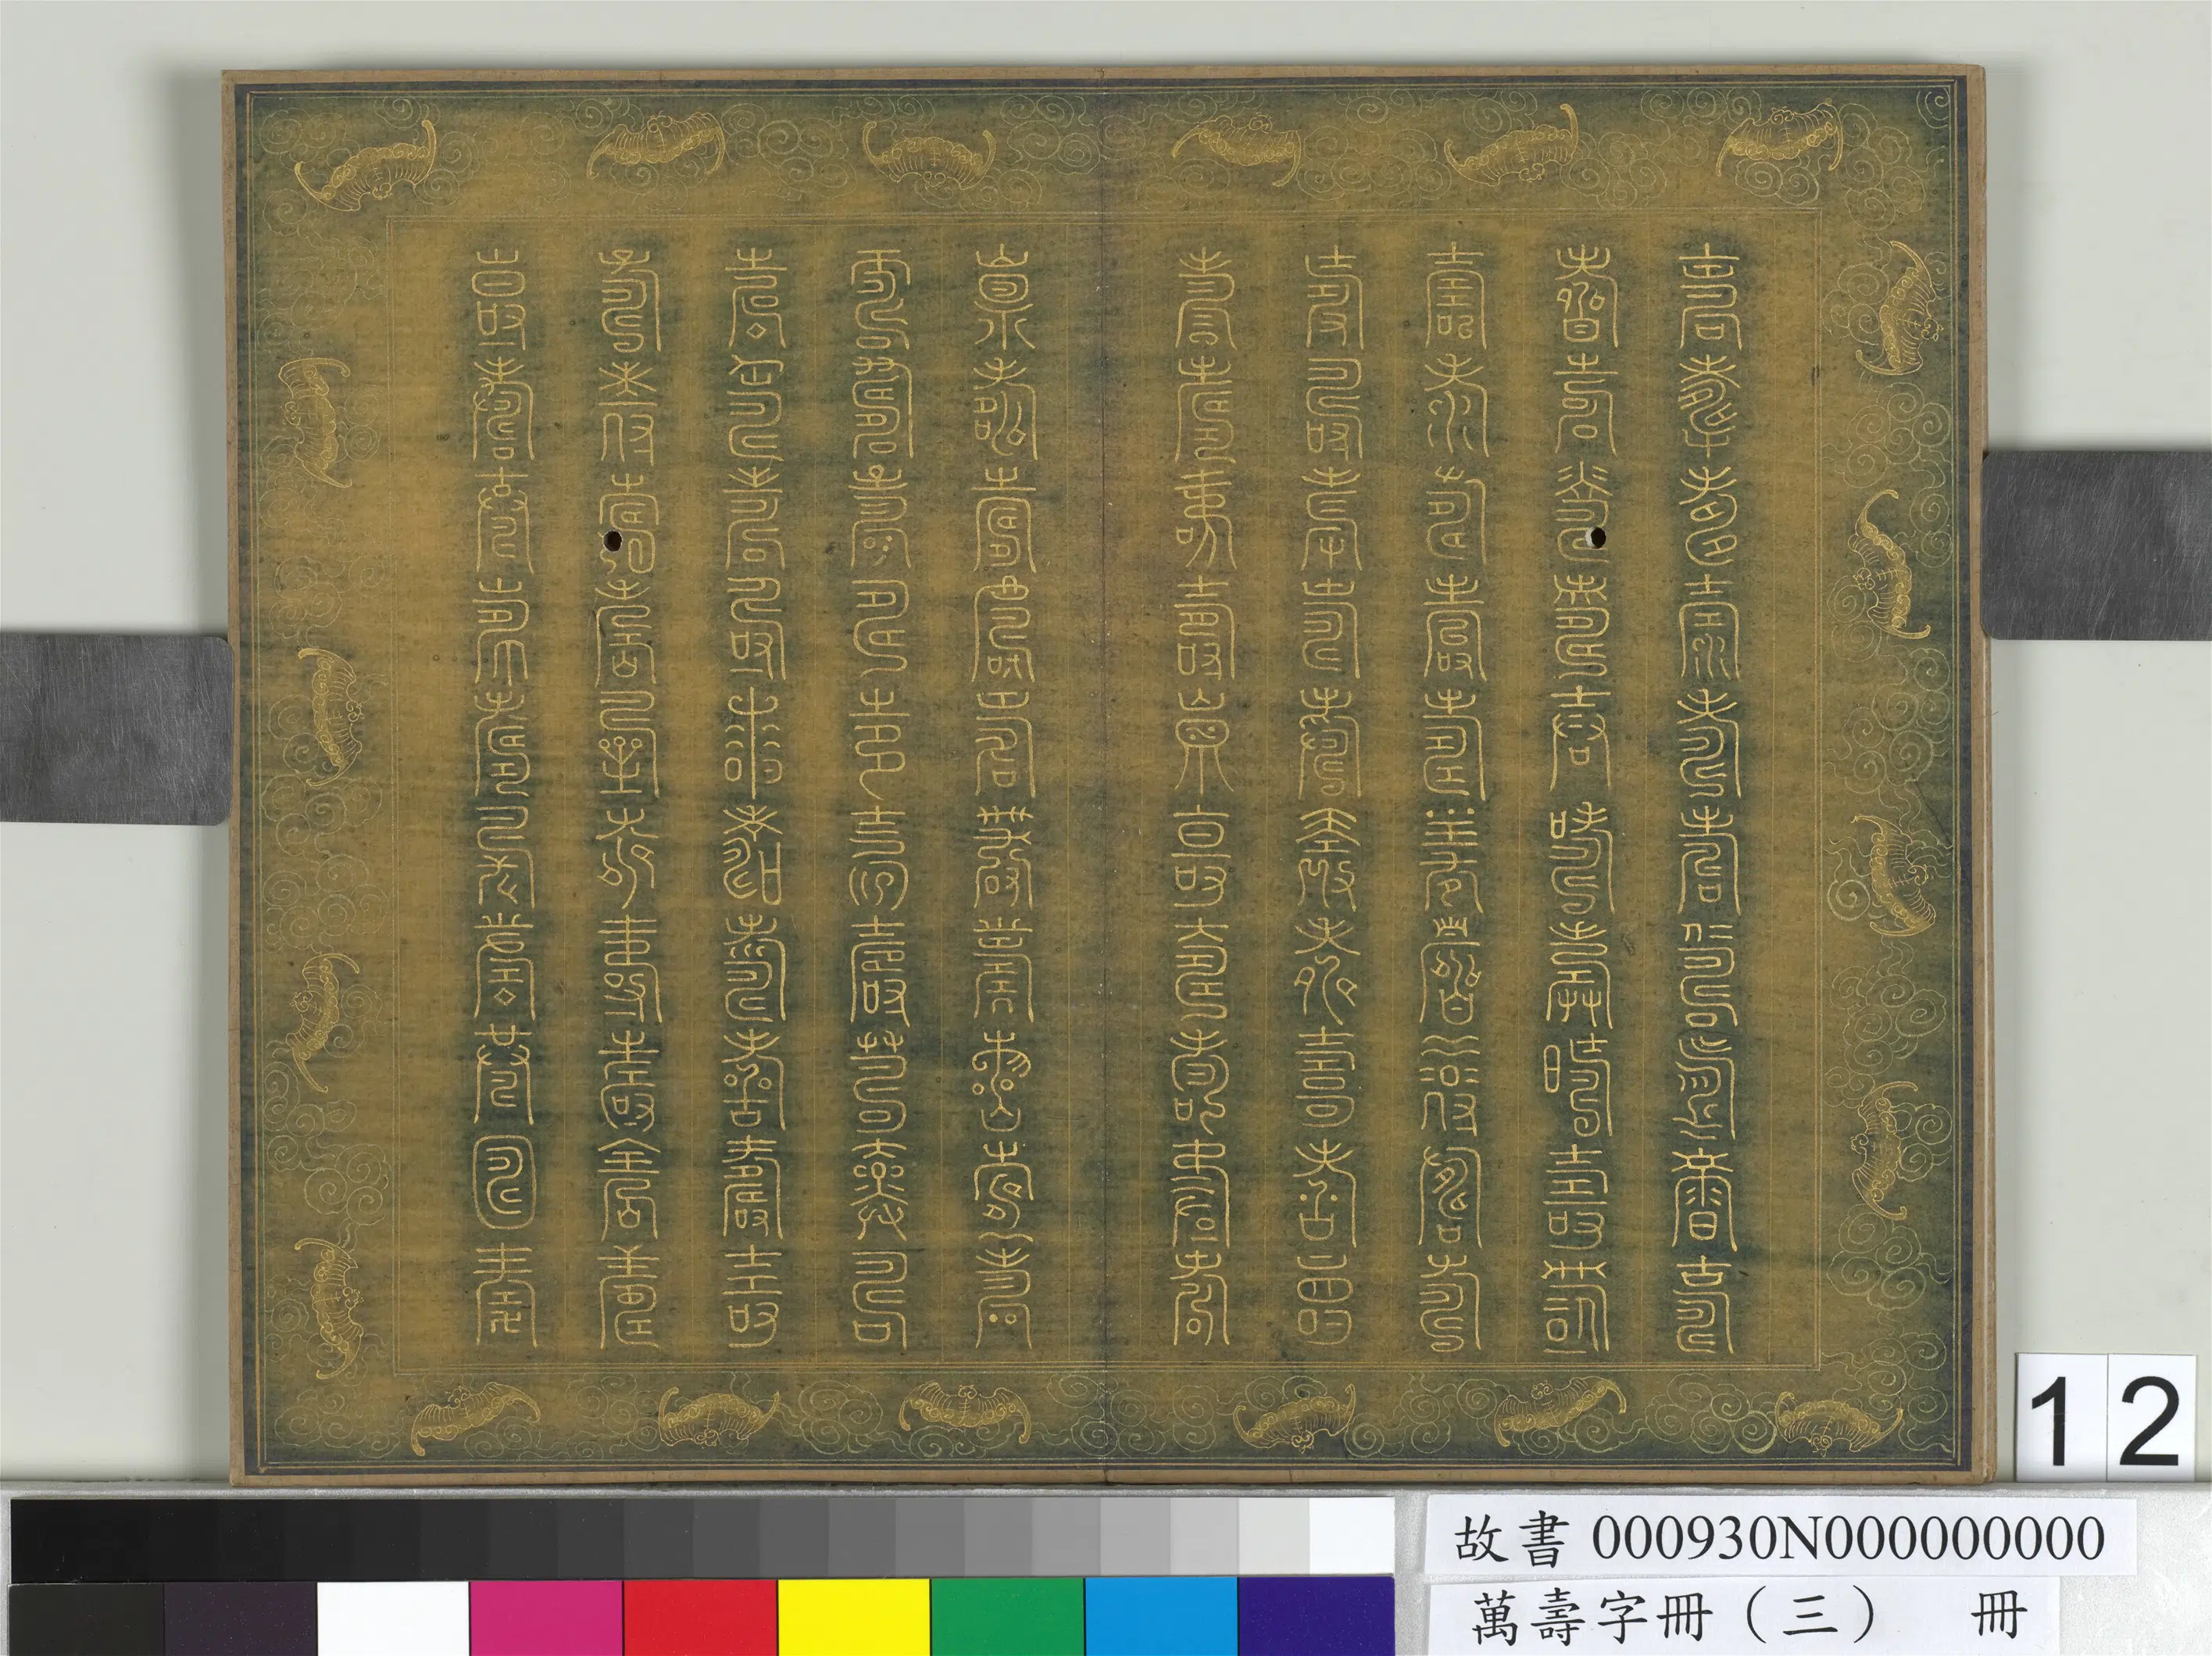 壽壽壽壽壽壽壽壽壽壽
壽壽壽壽壽壽壽壽壽壽
壽壽壽壽壽壽壽壽壽壽
壽壽壽壽壽壽壽壽壽壽
壽壽壽壽壽壽壽壽壽壽
壽壽壽壽壽壽壽壽壽壽
壽壽壽壽壽壽壽壽壽壽
壽壽壽壽壽壽壽壽壽壽
壽壽壽壽壽壽壽壽壽壽
壽壽壽壽壽壽壽壽壽壽
12
故書 000930N000000000
萬壽字冊（三） 冊